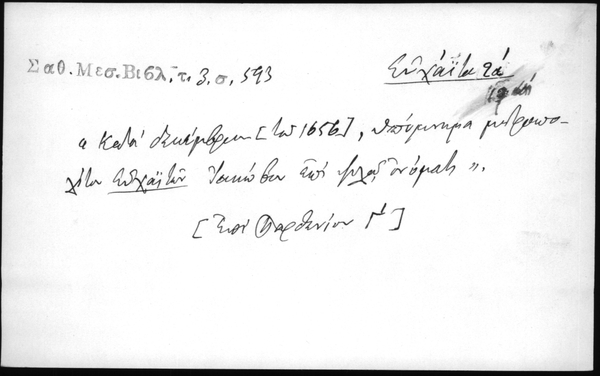 Σαθ. Μεσ. Βιβλ. τ. 3. σ. 593
Εὐχάϊτα τά
« Κατά δεκέμβριον [τοῦ 1656], ὑπόμνημα μητροπο-
λίτου Εὐχαϊτῶν Ἰακώβου ἐπί ψιλῷ ὀνόματι ».
[Ἐπί Παρθενίου Γ΄]